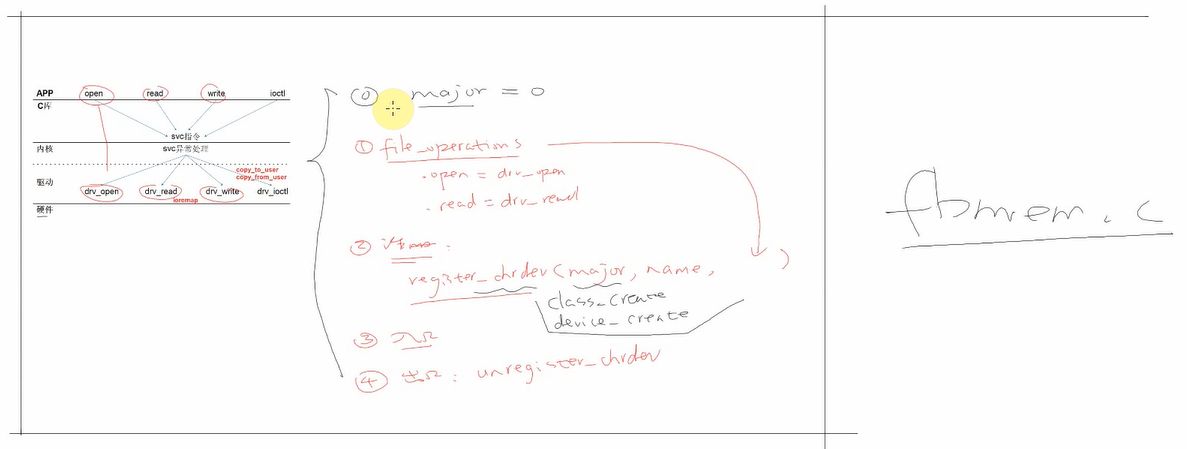 APP open read write ioctl
C库
svc指令
内核 svc异常处理
copy_to_user
copy_from_user
驱动
drv_open drv_read drv_write drv_ioctl
ioremap
硬件
⓪ major = 0
① file_operations
.open = drv_open
.read = drv_read
②
register_chrdev(major, name, )
class_create
device_create
③ 入口
④ 出口: unregister_chrdev
fbmem.c